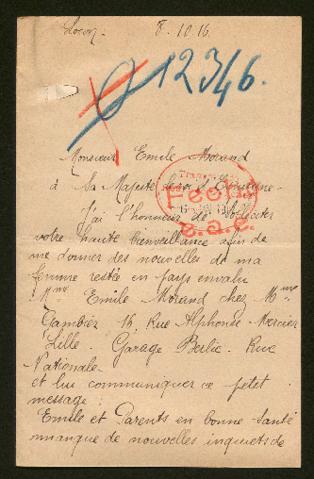 8.10.16
12346.
Monsieur Emile Morand
à Sa Majesté le roi d'Espagne.
J'ai l'honneur de solliciter
votre haute bienveillance afin de
me donner des nouvelles de ma
femme restée en pays envahi
Mme Emile Morand chez Mme
Gambier 16, Rue Alphonse Mercier
Lille. Garage Berlie. Rue
Nationale
et lui communiquer ce petit
message:
Emile et Parents en bonne santé
manque de nouvelles inquiets de